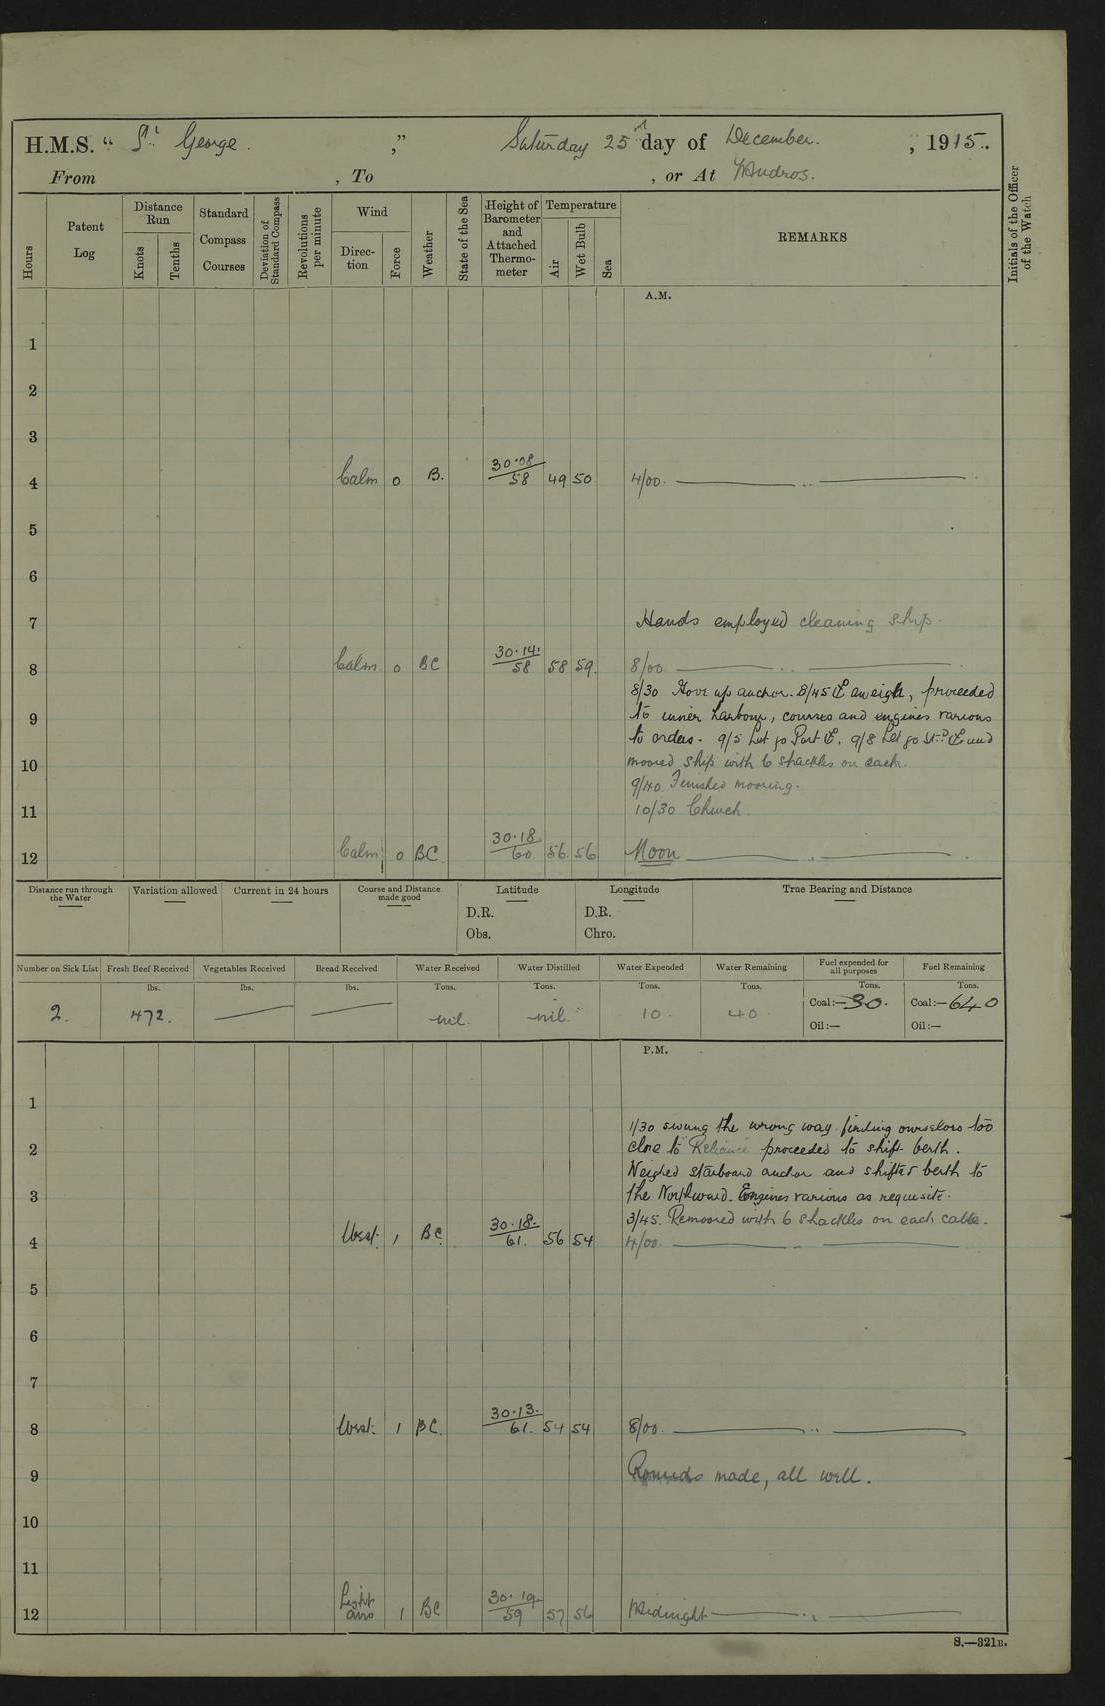 H.M.S. “ St George. ,” Saturday 25th day of December. , 1915.
From , To , or At Mudros.
Hours Patent Log Distance Run Knots Tenths Standard Compass Courses Deviation of Standard Compass Revolutions per minute Wind Direction Force Weather State of the Sea Height of Barometer and Attached Thermometer Temperature Air Wet Bulb Sea REMARKS Initials of the Officer of the Watch
A.M.
1
2
3
4 Calm 0 B. 30.08/58 49 50 4/00. ——— .. ———
5
6
7 Hands employed cleaning ship.
8 Calm 0 BC 30.14./58 58 59. 8/00 ——— .. ———
8/30 Hove up anchor. 8/45 aweigh, proceeded
9 to inner harbour, courses and engines various
to orders. 9/5 Let go Port. 9/8 Let go Stbd and
10 moored ship with 6 shackles on each.
9/40. Finished mooring.
11 10/30 Church.
12 Calm 0 BC. 30.18/60 56 56 Noon ——— .. ———
Distance run through the Water Variation allowed Current in 24 hours Course and Distance made good Latitude Longitude True Bearing and Distance
D.R. D.R.
Obs. Chro.
Number on Sick List Fresh Beef Received Vegetables Received Bread Received Water Received Water Distilled Water Expended Water Remaining Fuel expended for all purposes Fuel Remaining
lbs. lbs. lbs. Tons. Tons. Tons. Tons. Tons. Tons.
2. 472. — — nil. nil. 10. 40. Coal:—30. Coal:—640
Oil:— Oil:—
P.M.
1
1/30 swung the wrong way finding ourselves too
2 close to "Reliance" proceeded to shift berth.
Weighed starboard anchor and shifted berth to
3 the Northward. Engines various as requisite.
3/45. Remoored with 6 shackles on each cable.
4 West. 1 BC. 30.18./61. 56 54 4/00 ——— .. ———
5
6
7
8 West. 1 BC. 30.13./61. 54 54 8/00. ——— .. ———
9 Rounds made, all well.
10
11
12 Light airs 1 BC 30.19/59 57 56 Midnight ——— .. ———
S.—321B.